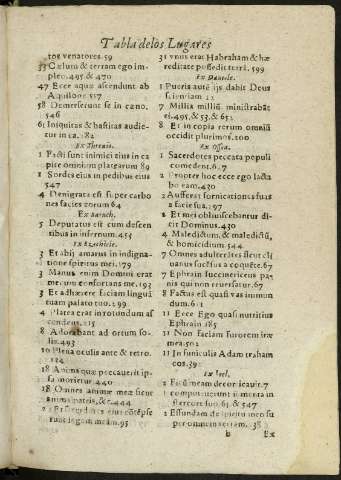 Tabla delos Lugares
tos venatores. 59
33 Cælum & terram ego im-
pleo. 495 & 470
47 Ecce aquæ ascendunt ab
Aquilone 517
58 Demerserunt se in cœno.
546
61 Iniquitas & hastitas audie-
tur in ea. 182
Ex Threnis.
1 Facti sunt inimici eius in ca
pite omnium platearum 89
1 Sordes eius in pedibus eius
547
4 Denigrata est super carbo
nes facies eorum 64
Ex Baruch.
5 Deputatus est cum descen
tibus in infernum. 453
Ex Ezechiele.
3 Et abij amarus in indigna-
tione spiritus mei. 179
3 Manus enim Domini erat
mecum confortans me. 193
3 Et adhærere faciam linguã
tuam palato tuo. 299
4 Platea erat in rotundum as
cendens. 215
8 Adorabant ad ortum so-
lis. 493
10 Plena oculis ante & retro.
124
18 Anima quæ peccauerit ip-
sa morietur. 440
18 Omnes animæ meæ sicut
anima patris, &c. 444
31 vnus erat Habraham & hæ
reditate possedit terrã. 599
Ex Daniele.
1 Pueris autẽ ijs dabit Deus
scientiam 22
7 Millia milliũ ministrabãt
ei. 495, & 53, & 652
8 Et in copia rerum omniũ
occidit plurimos. 200
Ex Ossea.
1 Sacerdotes peccata populi
comedent. 6. 7
2 Propter hoc ecce ego lacta
bo eam. 430
2 Aufferat fornicationes suas
a facie sua. 197
2 Et mei obliuiscebantur di-
cit Dominus. 430
4 Maledictum, & maledictũ,
& homicidium 544
7 Omnes adulterantes sicut cli
uanus succẽsus a coquẽte. 67
7 Ephrain succinericeus pa-
nis qui non reuersatur. 67
8 Factus est quasi vas inmun
dum. 61
11 Ecce Ego quasi nutritius
Ephrain 185
11 Non faciam furorem iræ
mea. 502
11 In funiculis Adam traham
eos. 39
Ex Ioel.
1 Ficũ meam decorticauit. 7
1 computruerunt iumenta in
stercore suo. 63 & 547
2 Effundam de spiritu meo su
per omnem carnem. 38
b Ex